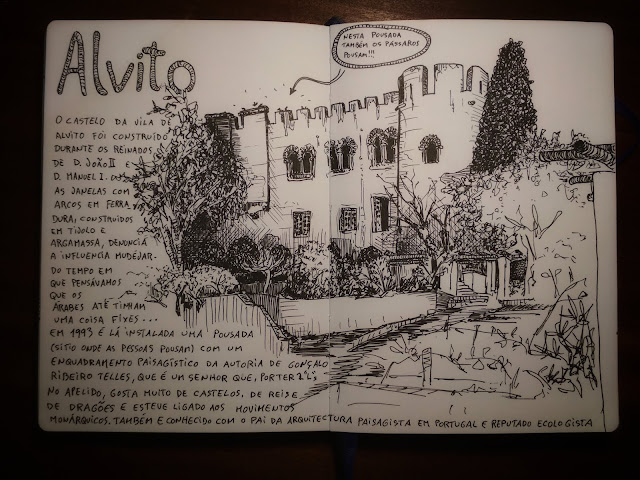 Alvito
NESTA POUSADA
TAMBÉM OS PÁSSAROS
POUSAM!!!
O CASTELO DA VILA DE
ALVITO FÓI CONSTRUÍDO
DURANTE OS REINADOS
DE D. JOÃO II E
D. MANUEL I.
AS JANELAS COM
ARCOS EM FERRA
DURA, CONSTRUÍDOS
EM TIJOLO E
ARGAMASSA, DENUNCIA
A INFLUENCIA MUDÉJAR.
DO TEMPO EM
QUE PENSÁVAMOS
QUE OS
ÁRABES ATÉ TINHAM
UMA COISA FIXES...
EM 1993 É LÁ INSTALADA UMA POUSADA
(SITIO ONDE AS PESSOAS POUSAM) COM UM
ENQUADRAMENTO PAISAGÍSTICO DA AUTORIA DE GONÇALO
RIBEIRO TELLES, QUE É UM SENHOR QUE, POR TER 2 L'S
NO APELIDO, GOSTA MUITO DE CASTELOS, DE REIS E
DE DRAGÕES E ESTEVE LIGADO AOS MOVIMENTOS
MONÁRQUICOS. TAMBÉM E CONHECIDO COM O PAI DA ARQUITECTURA PAISAGISTA EM PORTUGAL E REPUTADO ECOLOGISTA